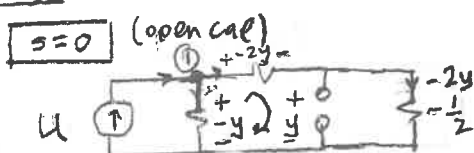 s=0 (open cap)
①
+ -2y -
u
+
-y
-
+
y
-
-2y
1/2